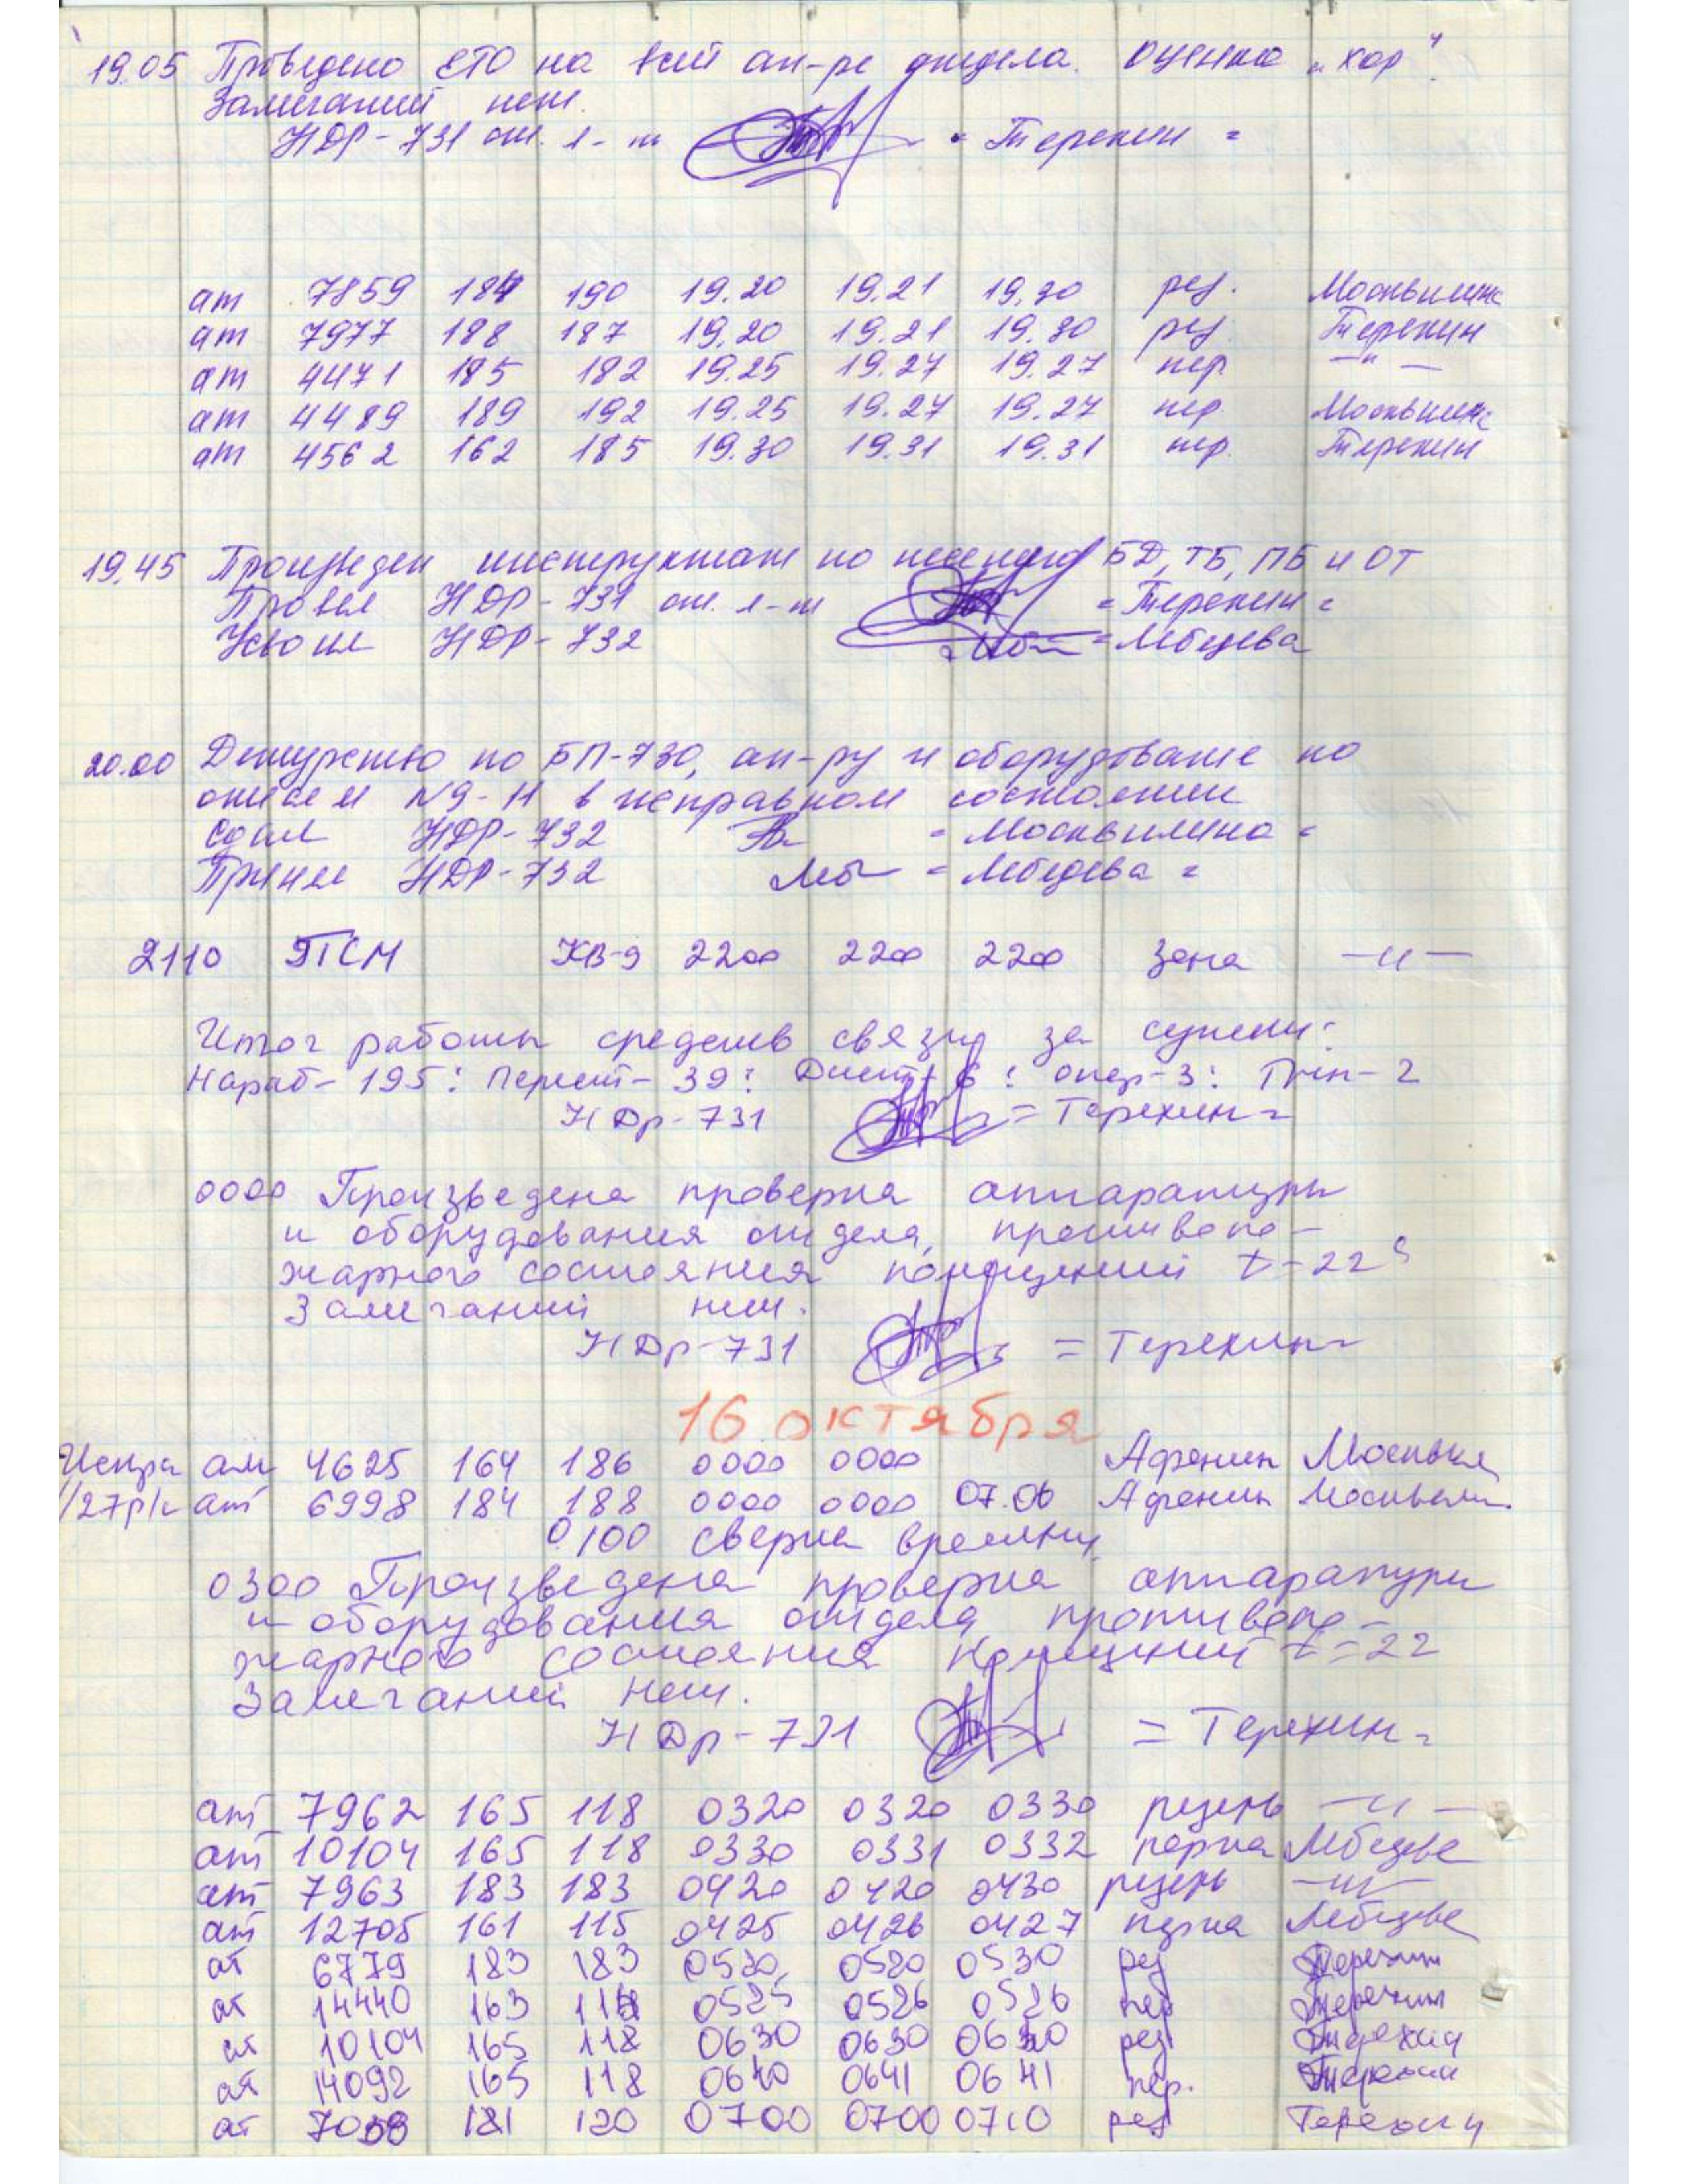 19.05 Проведено ЕТО на всей ап-ре отдела. Оценка „хор"
Замечаний нет.
НДР-731 от. л-т = Терехин =
ат 7859 184 190 19.20 19.21 19.30 рез. Москвилина
ат 7977 188 187 19.20 19.21 19.30 рез. Терехин
ат 4471 185 182 19.25 19.27 19.27 пер. —"—
ат 4489 189 192 19.25 19.27 19.27 пер. Москвилина
ат 4562 162 185 19.30 19.31 19.31 пер. Терехин
19.45 Произведен инструктаж по несению БД, ТБ, ПБ и ОТ
Провел НДР-731 от. л-т = Терехин =
Усвоил НДР-732 = Лебедева
20.00 Дежурство по БП-730, ап-ру и оборудование по
описям N9-11 в исправном состоянии
Сдал НДР-732 = Москвилина =
Принял НДР-732 Леб = Лебедева =
2110 ЭТСМ КВ-9 2200 2200 2200 Зона —"—
Итог работы средств связи за сутки:
Нараб- 195: Перест- 39: Дист- 6: опер-3: Тгп- 2
НДр-731 = Терехин =
0000 Произведена проверка аппаратуры
и оборудования отдела, противопо-
жарного состояния помещений t=22°
Замечаний нет.
НДр-731 = Терехин =
16 октября
ат 4625 164 186 0000 0000 Афонин Москвил
ат 6998 184 188 0000 0000 07.06 Афонин Москвилин
0100 сверка времени
0300 Произведена проверка аппаратуры
и оборудования отдела противопо-
жарного состояния помещений t=22
Замечаний нет.
НДр-731 = Терехин =
ат 7962 165 118 0320 0320 0330 резерв —"—
ат 10104 165 118 0330 0331 0332 порча Лебедев
ат 7963 183 183 0420 0420 0430 резерв —"—
ат 12705 161 115 0425 0426 0427 Лебедев
ат 6779 183 183 0520 0520 0530 рез Терехин
ат 14440 163 0525 0526 0526 пер Терехин
ат 10104 165 118 0630 0630 0640 рез Терехин
ат 14092 165 118 0640 0641 0641 пер. Терехин
ат 181 120 0700 0700 0710 рез Терехин